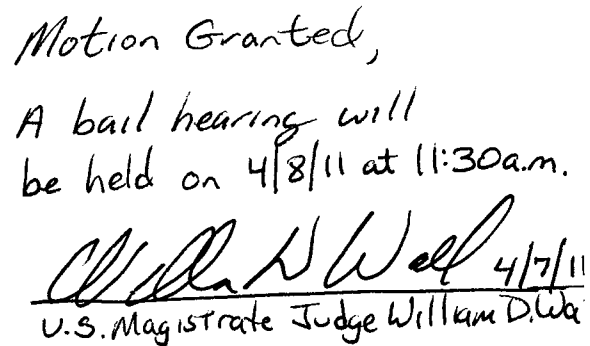 Motion Granted,
A bail hearing will
be held on 4/8/11 at 11:30a.m.
William D Wall 4/7/11
U.S. Magistrate Judge William D. Wa